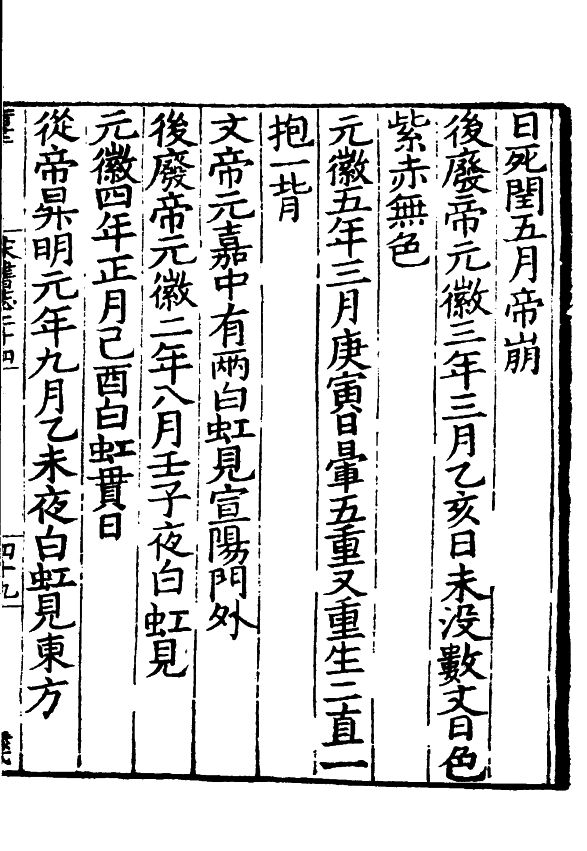 日死閏五月帝崩
後廢帝元徽三年三月乙亥日未没數丈日色
紫赤無色
元徽五年三月庚寅日暈五重又重生二直一
抱一背
文帝元嘉中有兩白虹見宣陽門外
後廢帝元徽二年八月壬子夜白虹見
元徽四年正月己酉白虹貫日
從帝昇明元年九月乙未夜白虹見東方
宋書志二十四
四十九